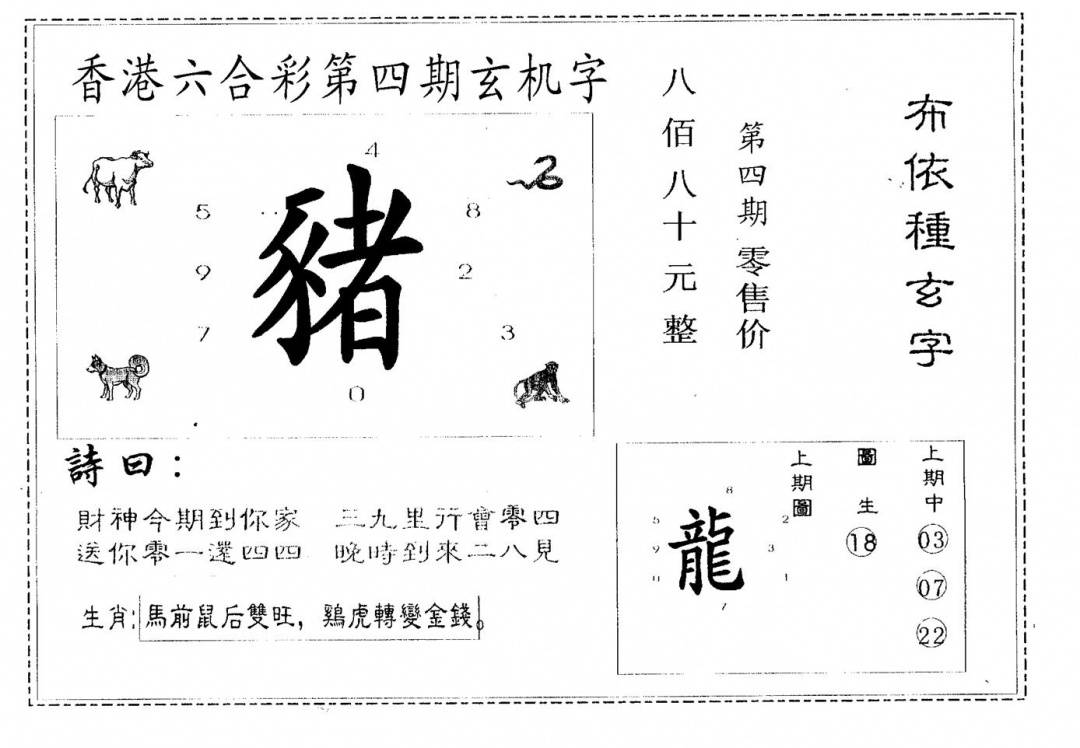 香港六合彩第四期玄机字
4
5
8
豬
9
2
7
3
0
八佰八十元整
第四期零售价
布依種玄字
詩曰：
財神今期到你家 三九里行會零四
送你零一還四四 晚時到來二八見
生肖：馬前鼠后雙旺，鷄虎轉變金錢。
上期圖
圖生
18
上期中
03
07
22
8
5
2
龍
9
3
1
7